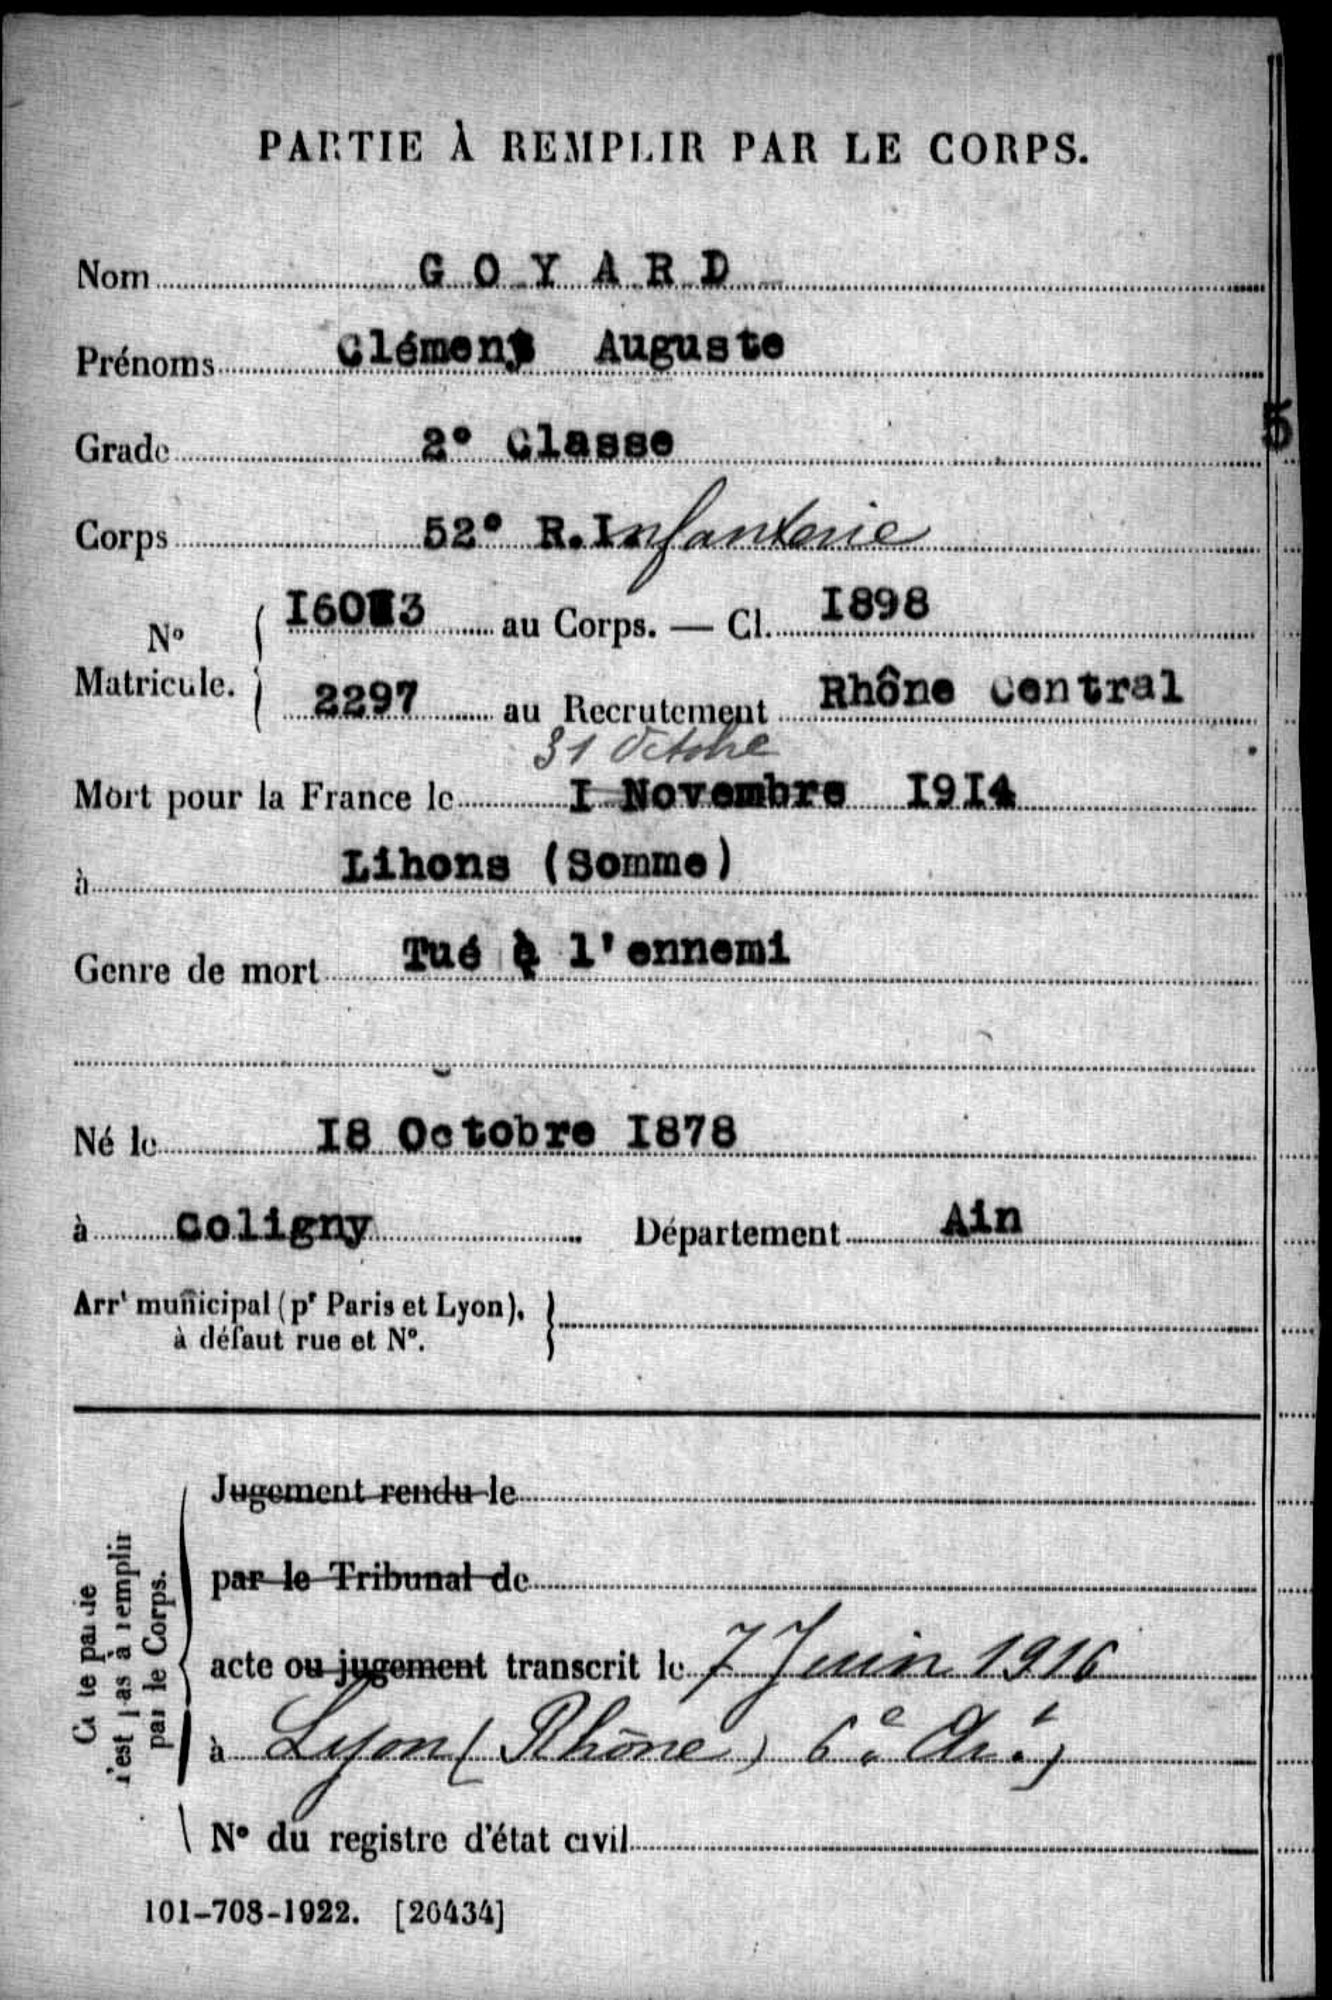 PARTIE À REMPLIR PAR LE CORPS.
Nom GOYARD
Prénoms Clément Auguste
Grade 2° Classe
Corps 52° R.Infanterie
N° Matricule. { 16013 au Corps. — Cl. 1898
2297 au Recrutement Rhône Central
31 Octobre
Mort pour la France le 1 Novembre 1914
à Lihons (Somme)
Genre de mort Tué à l'ennemi
Né le 18 Octobre 1878
à Coligny Département Ain
Arrt municipal (pr Paris et Lyon), }
à défaut rue et N°.
Jugement rendu le
par le Tribunal de
acte ou jugement transcrit le 7 Juin 1916
à Lyon (Rhône) 6e Art)
N° du registre d'état civil
Cette partie
n'est pas à remplir
par le Corps.
101-708-1922. [26434]
5